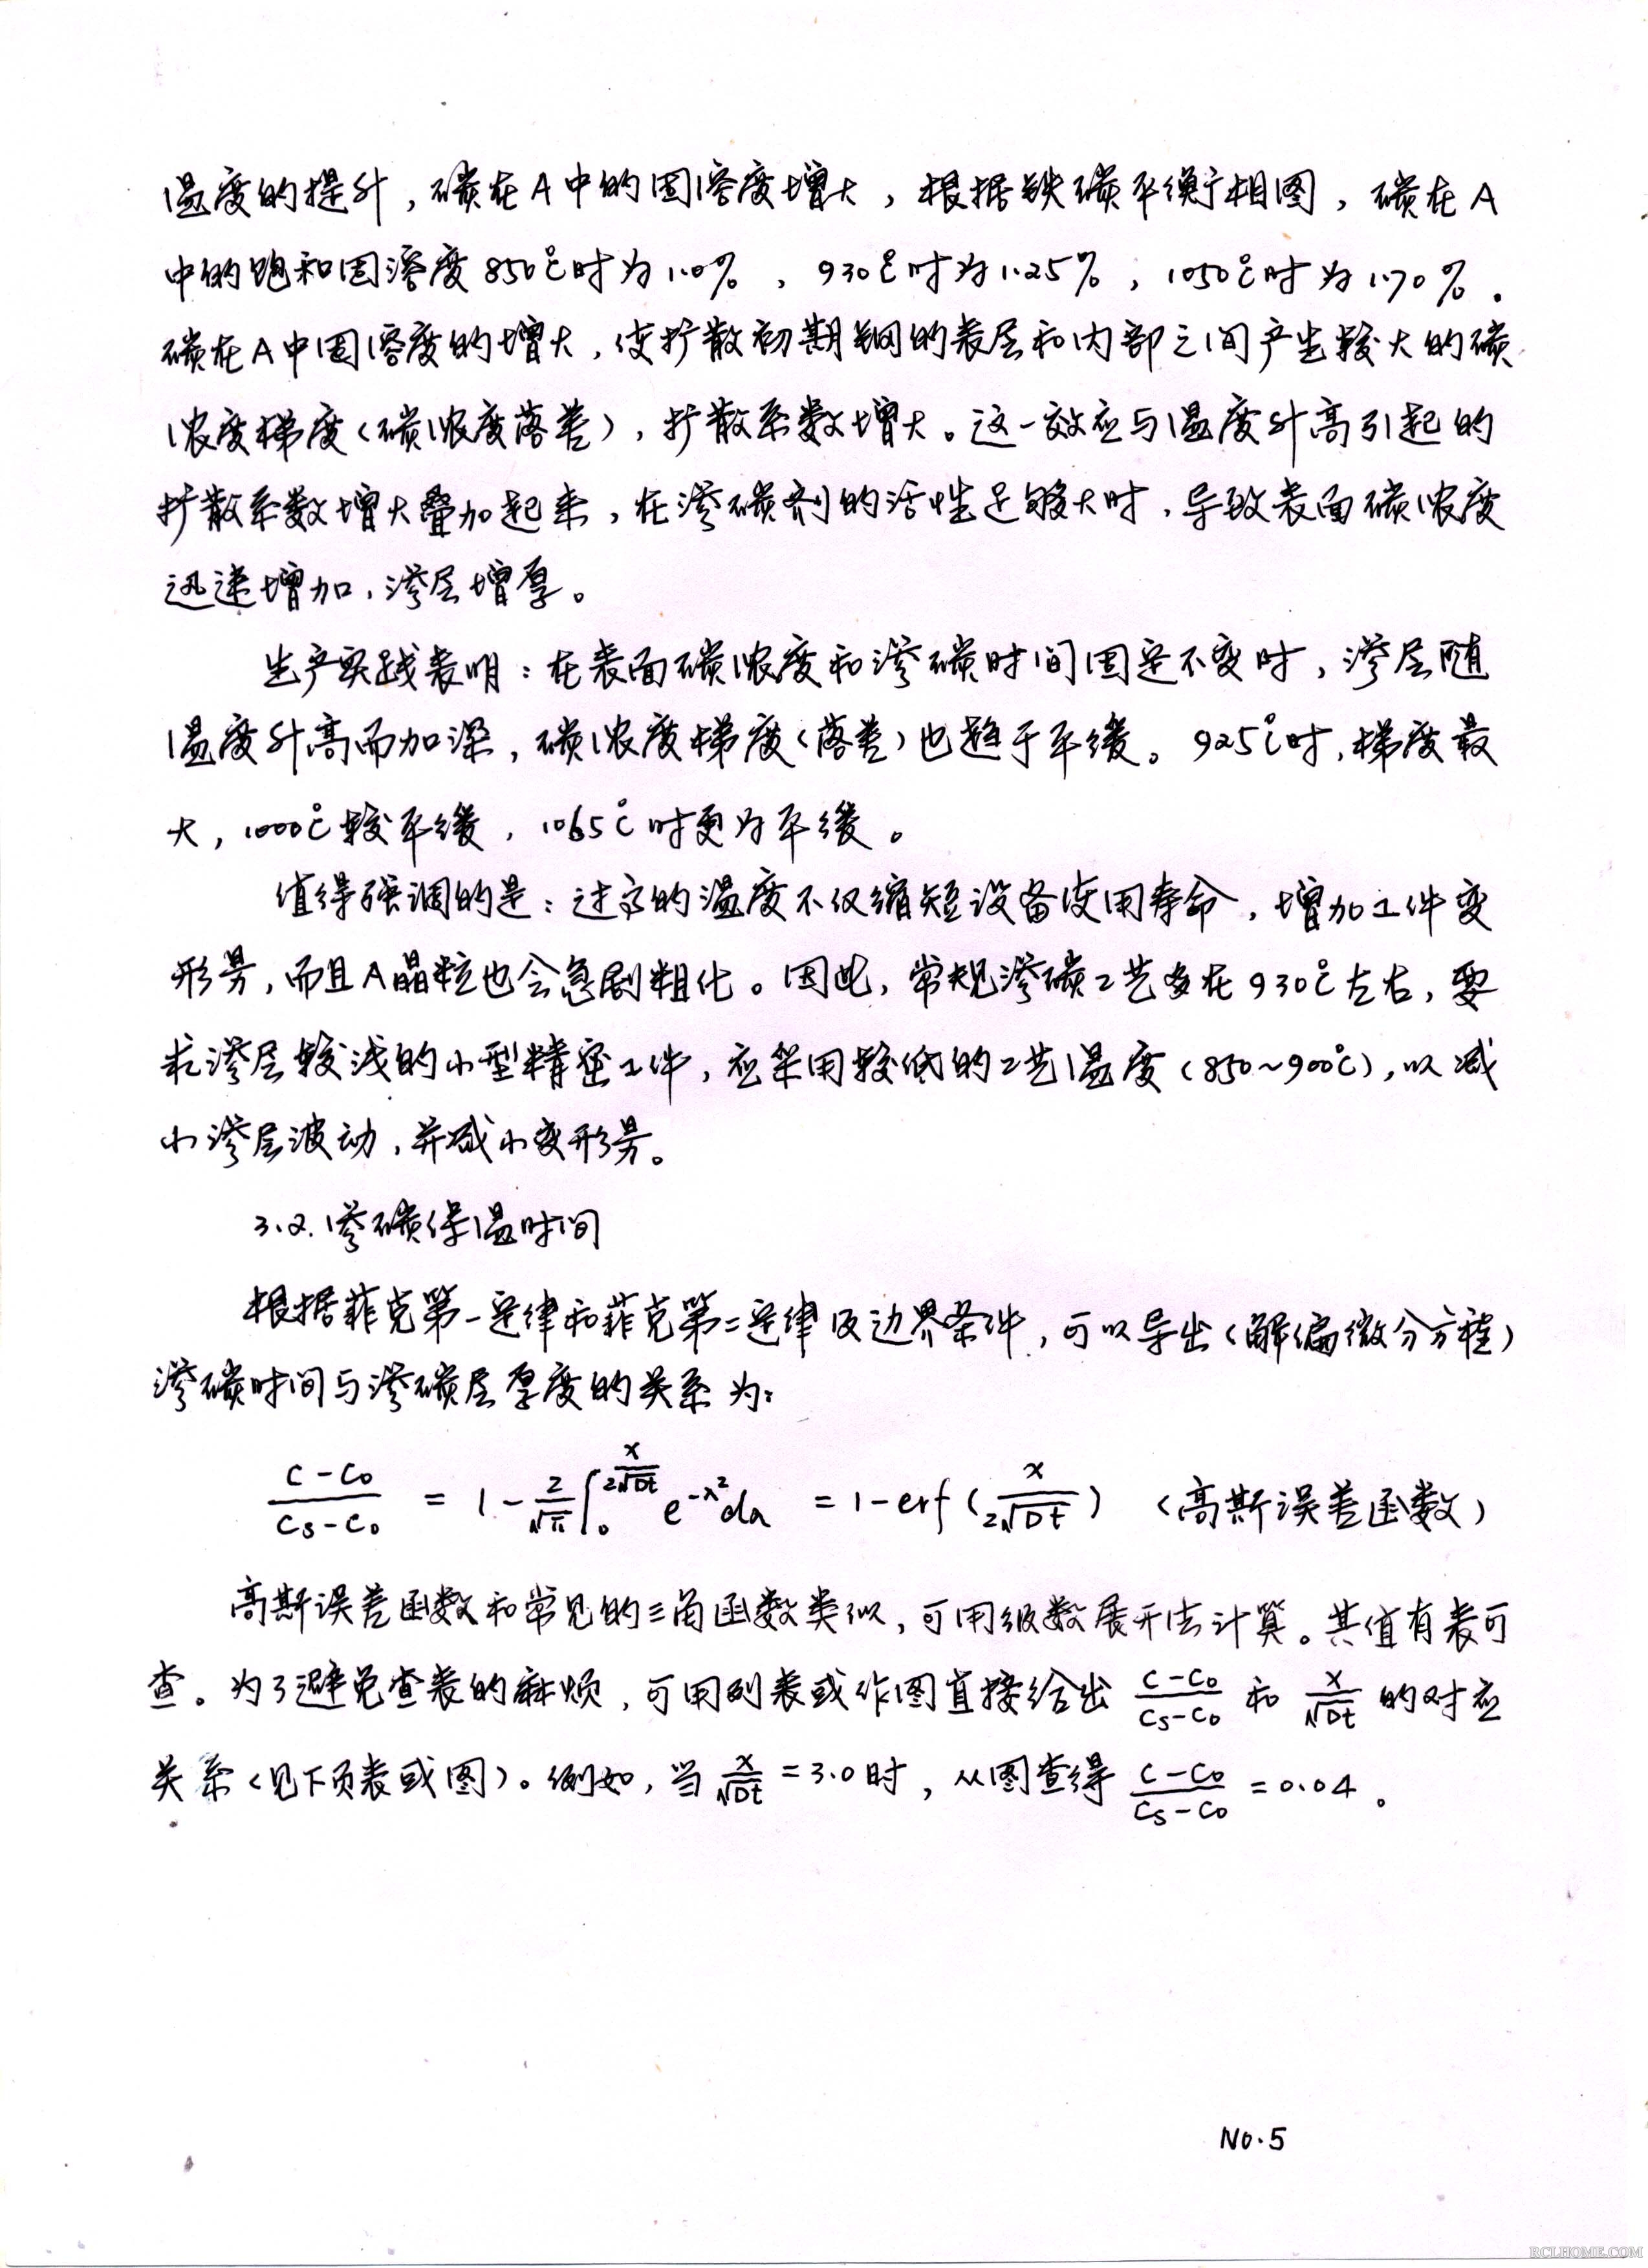 温度的提升，碳在A中的固溶度增大，根据铁碳平衡相图，碳在A
中的饱和固溶度850℃时为1.0%，930℃时为1.25%，1050℃时为1.70%。
碳在A中固溶度的增大，使扩散初期钢的表层和内部之间产生较大的碳
浓度梯度（碳浓度落差），扩散系数增大。这一效应与温度升高引起的
扩散系数增大叠加起来，在渗碳剂的活性足够大时，导致表面碳浓度
迅速增加，渗层增厚。
生产实践表明：在表面碳浓度和渗碳时间固定不变时，渗层随
温度升高而加深，碳浓度梯度（落差）也趋于平缓。925℃时，梯度最
大，1000℃较平缓，1065℃时更为平缓。
值得强调的是：过高的温度不仅缩短设备使用寿命，增加工件变
形量，而且A晶粒也会急剧粗化。因此，常规渗碳工艺多在930℃左右，要
求渗层较浅的小型精密工件，应采用较低的工艺温度（850~900℃），以减
小渗层波动，并减小变形量。
3.2.渗碳保温时间
根据菲克第一定律和菲克第二定律及边界条件，可以导出（解偏微分方程）
渗碳时间与渗碳层厚度的关系为：
(C-C₀)/(Cs-C₀) = 1 - 2/√π ∫₀^(x/(2√Dt)) e^(-λ²)dλ = 1-erf(x/(2√Dt)) （高斯误差函数）
高斯误差函数和常见的三角函数类似，可用级数展开法计算。其值有表可
查。为了避免查表的麻烦，可用列表或作图直接给出 (C-C₀)/(Cs-C₀) 和 x/√Dt 的对应
关系（见下页表或图）。例如，当 x/√Dt = 3.0时，从图查得 (C-C₀)/(Cs-C₀) = 0.04。
No.5
RCLHOME.COM